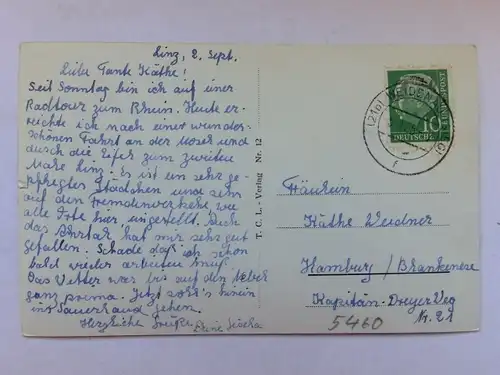 Linz, 2. Sept.
Liebe Tante Käthe!
Seit Sonntag bin ich auf einer
Radtour zum Rhein. Heute er-
reichte ich nach einer wunder-
schönen Fahrt an der Mosel und
durch die Eifel zum zweiten
Male Linz. Es ist ein sehr ge-
pflegtes Städtchen und sehr
auf den Fremdenverkehr, wie
alle Orte hier, eingestellt. Auch
das Ahrtal hat mir sehr gut
gefallen. Schade daß ich schon
bald wieder arbeiten muß.
Das Wetter war bis auf den Nebel
ganz prima. Jetzt soll's hinein
ins Sauerland gehen.
Herzliche Grüße
Deine
T. C. L.-Verlag Nr. 12
10
DEUTSCHE BUNDESPOST
(21b)
Fräulein
Käthe Weidner
Hamburg/Blankenese
Kapitän-Dreyer Weg
Nr. 21
5460